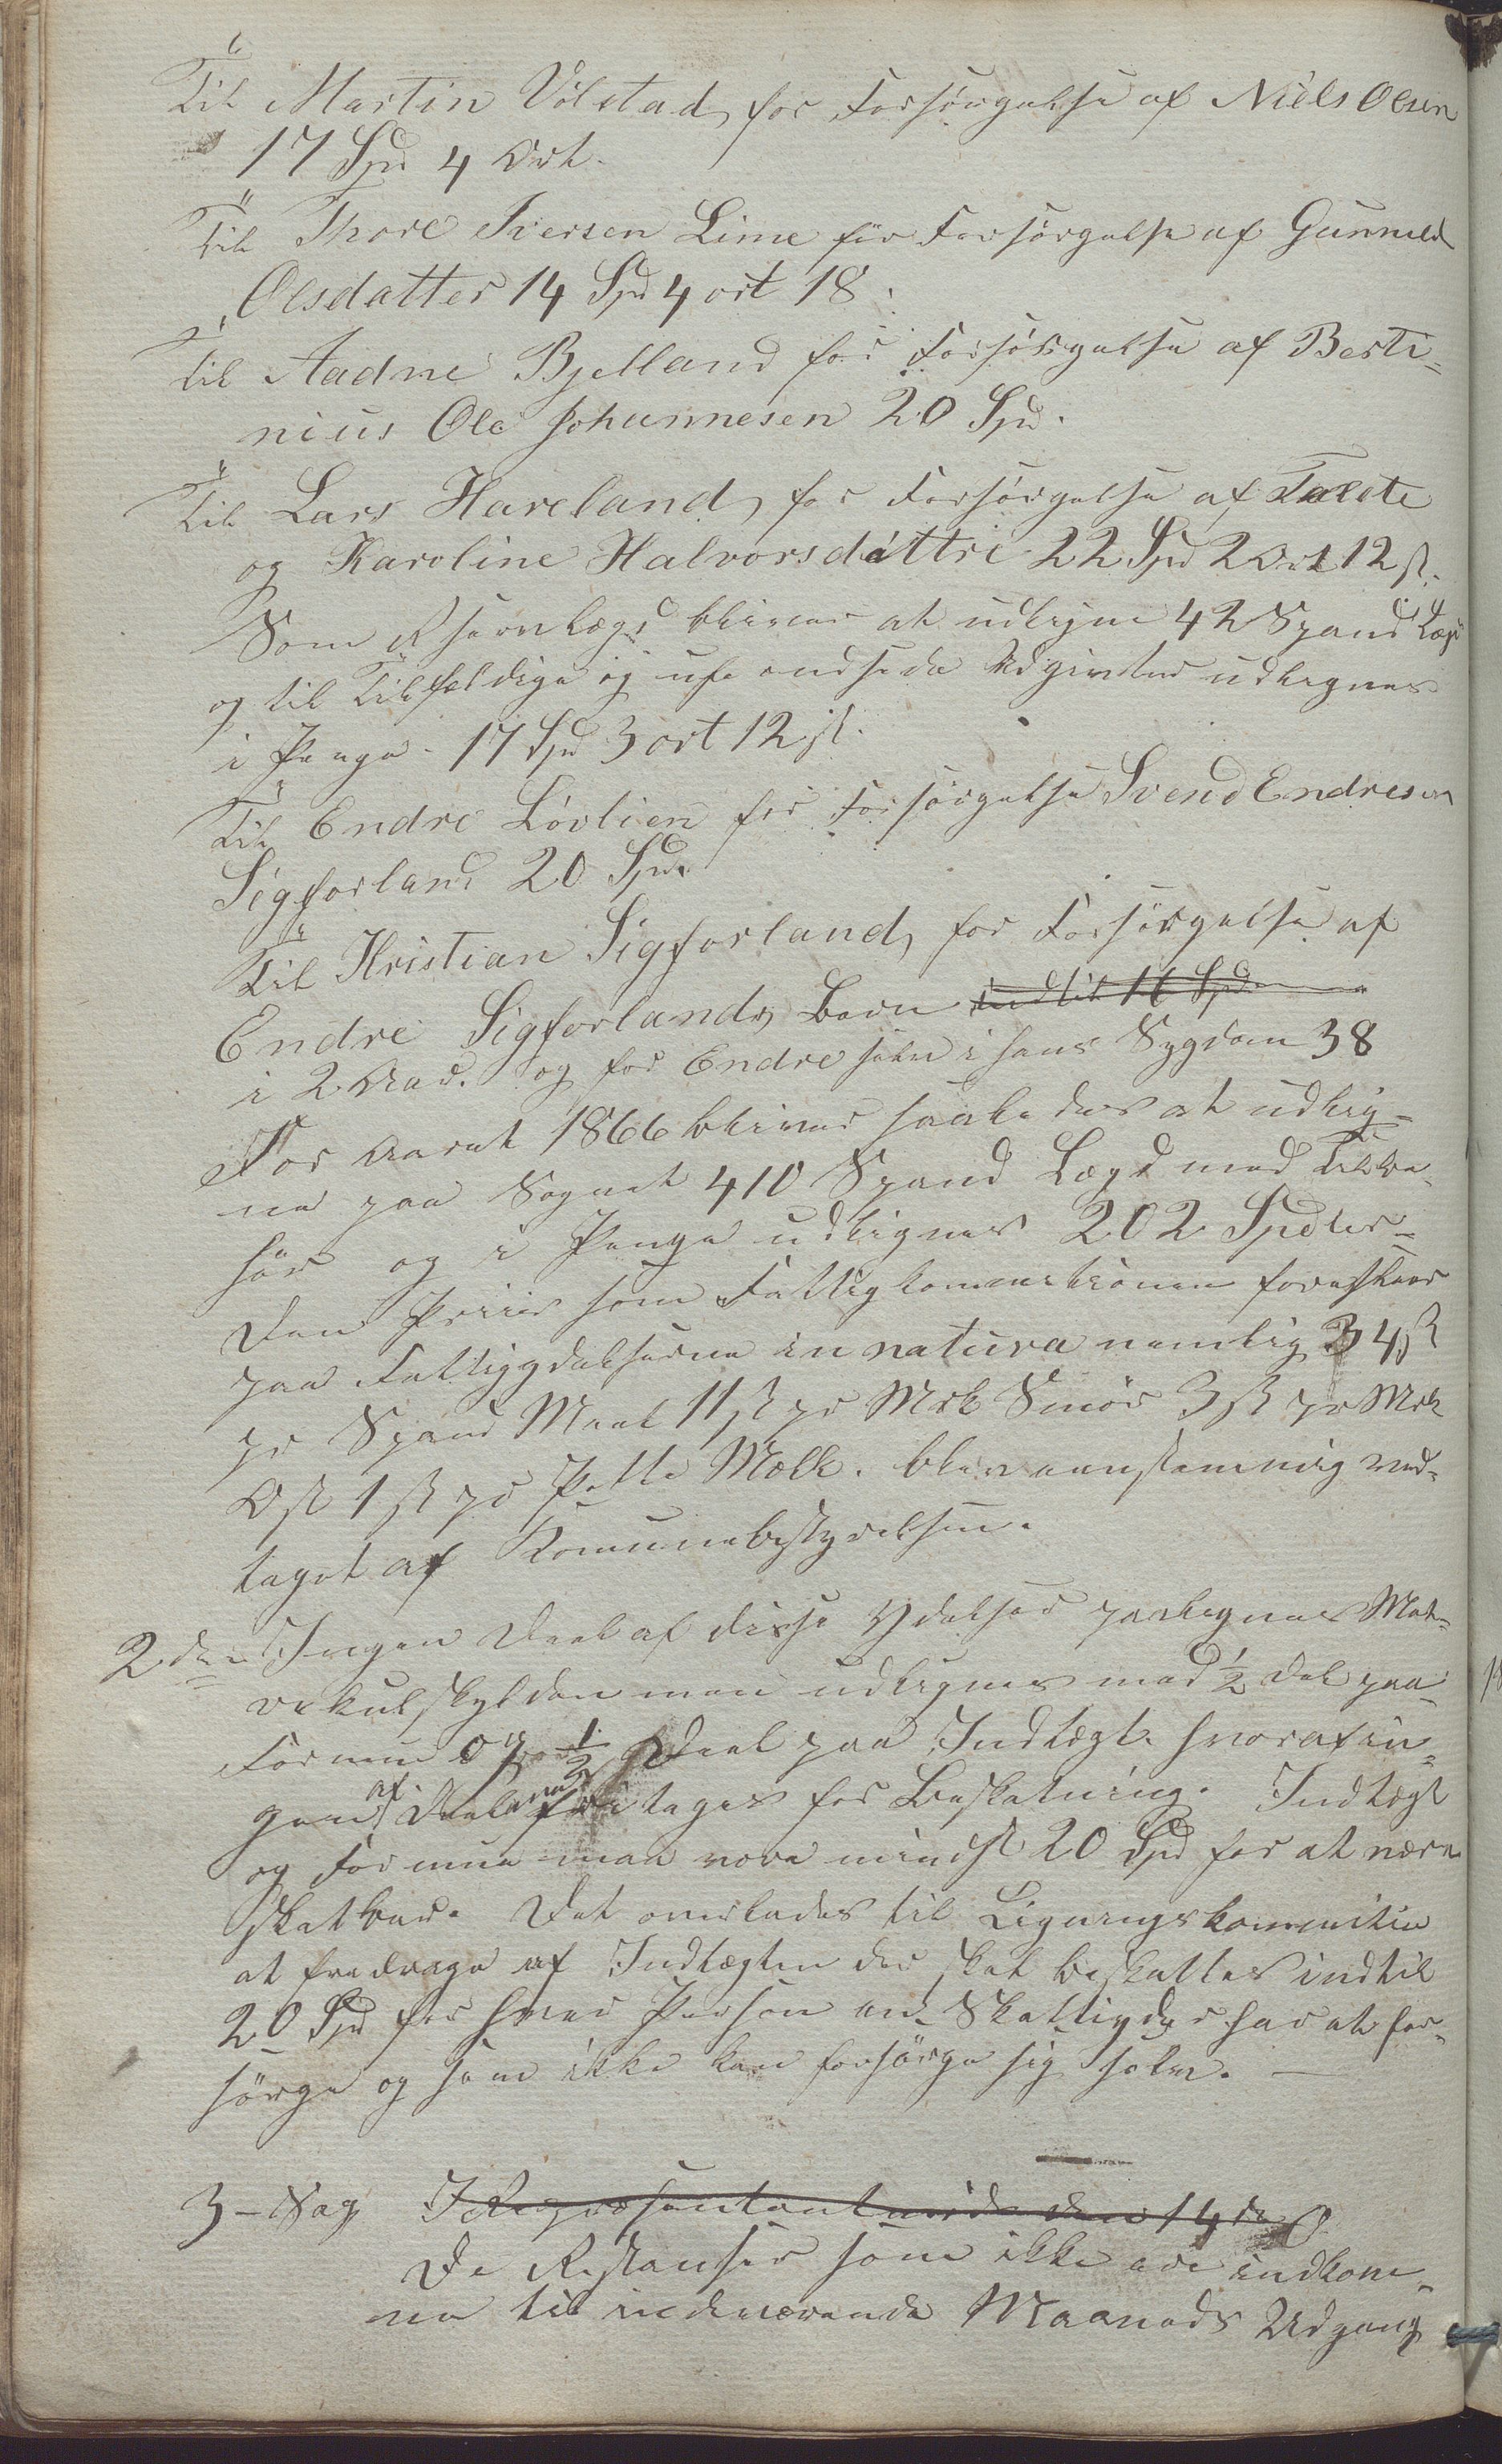 Til Martin Völstad, for Forsörgelse af Niels Olsen
17 Spd 4 Ort.
Til Thore Iversen Lime for Forsörgelse af Gunneld
Olsdatter 14 Spd 4 ort 18.
Til Aadne Bjelland for Forsörgelse af Berti-
nius Ole Johannesen 20 Spd.
Til Lars Haveland, for Forsörgelse af Talete
og Karoline Halvorsdöttre 22 Spd 2 Ort 12 ß.
Som Reservelægd bliver at udligne 42 Spand Lægd
og til Tilfældige og uforudsede Udgivter udlignes
i Penge 17 Spd 3 ort 12 ß.
Til Endre Lövlien for Forsörgelse Svend Endresen
Sigforland 20 Spd.
Til Kristian Sigforland, for Forsörgelse af
Endre Sigforlands Barn indtil 16 Spd
i 2 Aar. og for Endre selv i hans Sygdom 38
For Aaret 1866 bliver saaledes at udlig-
ne paa Sognet 410 Spand Lægd med Tilbe-
hör og i Penge udlignes 202 Spdler-
Den Priis som Fattigkommisionen foreslaar
paa Fattigydelserne in natura nemlig 34 ß
pr Spand Meel 11 ß pr Mrk Smör 3 ß pr Mrk
Ost 1 ß pr Potte Mælk. blev eenstemmig ved-
taget af Komunebestyrelsen.
2den Ingen Deel af disse Ydelser paalignes Mat-
rikulskylden men udlignes med ½ Del paa
Formue og ½ Deel paa Indtægt. hvoraf in-
gen af Delene fritages for Beskatning. Indtægt
og Formue maa være mindst 20 Spd for at være
skatbar. Det overlades til Ligningskommitien
at fradrage af Indtægten der skal beskattes indtil
20 Spd for hver Person en Skattiyder har at for-
sörge og som ikke kan forsörge sig selv. —
3 - Sag I Repræsentantmöde den 14de
De Restanser som ikke ere indkom-
ne til indeværende Maaneds Udgang